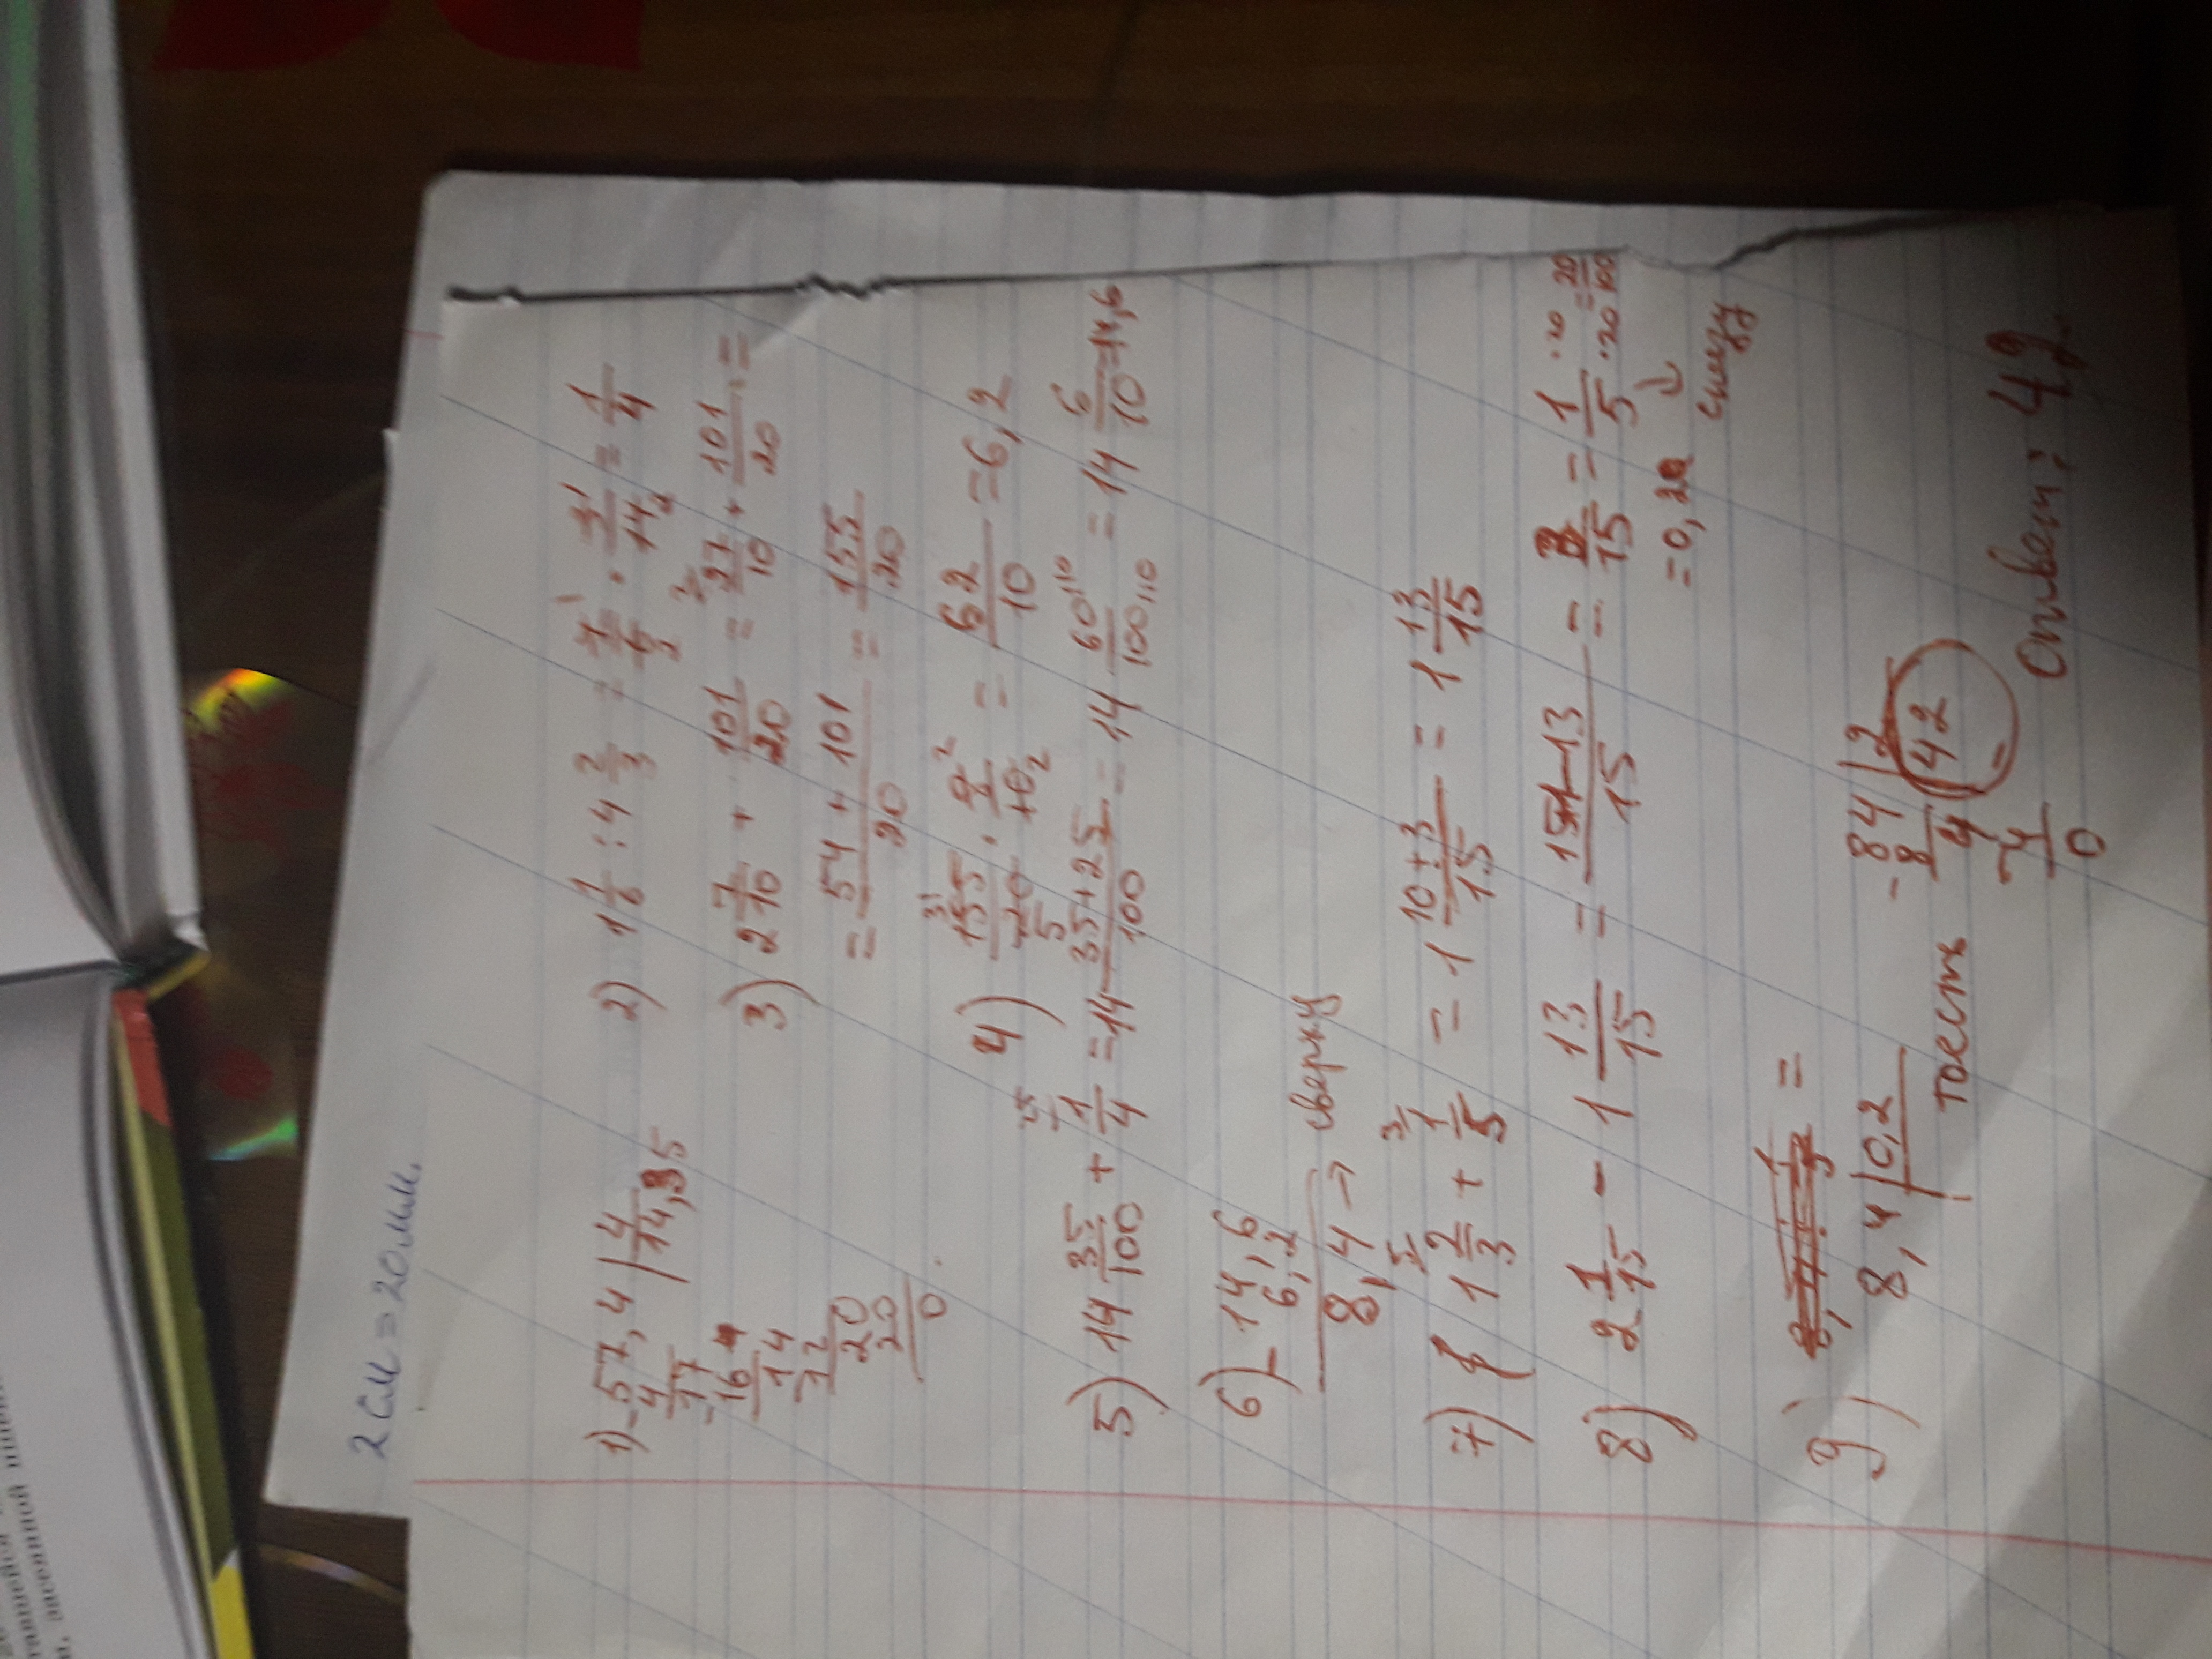 2 см = 20 мм.
1) - 57,4 | 4
4 14,35
17
- 16
14
- 12
20
20
0
2) 1 1/6 : 4 2/3 = 7/6 · 3/14 = 1/4
3) 2 7/10 + 101/20 = 27/10 + 101/20 =
= 54 + 101/20 = 155/20
4) 155/20 · 8/10 = 62/10 = 6,2
5) 14 35/100 + 1/4 = 14 35+25/100 = 14 60/100 = 14 6/10 = 14,6
6) - 14,6
6,2
8,4 → сверху
7) 1 2/3 + 1/5 = 1 10+3/15 = 1 13/15
8) 2 1/15 - 1 13/15 = = 3/15 = 1/5 ·20/·20 = 20/100
= 0,2 ↓
снизу
9) =
8,4 | 0,2
тоесть - 84 | 2
8 42
4
- 4
0
Ответ: 42.